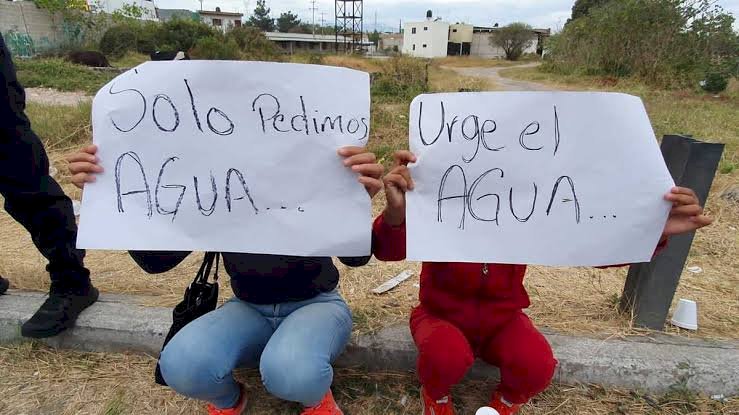 Solo Pedimos
AGUA...
Urge el
AGUA...